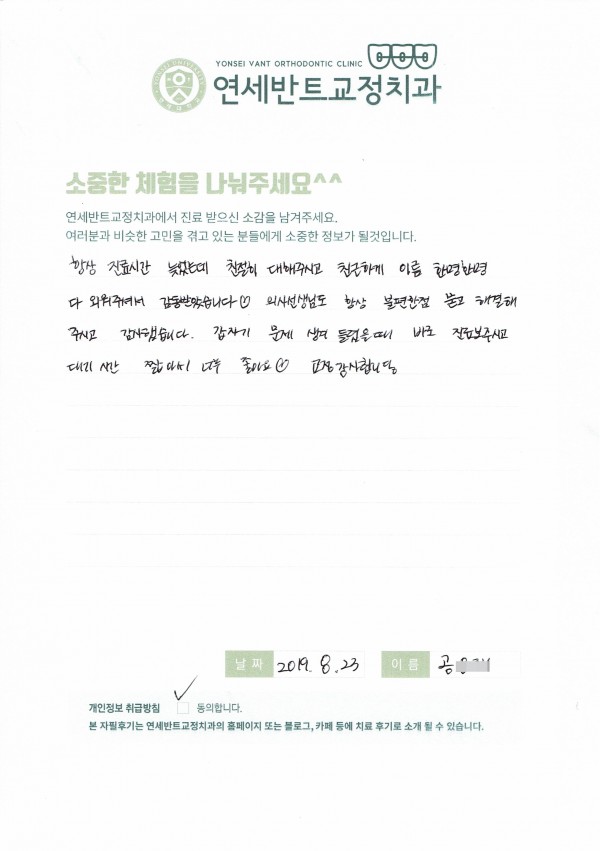 YONSEI VANT ORTHODONTIC CLINIC
연세반트교정치과
소중한 체험을 나눠주세요^^
연세반트교정치과에서 진료 받으신 소감을 남겨주세요.
여러분과 비슷한 고민을 겪고 있는 분들에게 소중한 정보가 될것입니다.
항상 진료시간 늦었는데 친절히 대해주시고 친근하게 이름 한명한명
다 외워주셔서 감동받았습니다 의사선생님도 항상 불편한점 듣고 해결해
주시고 감사했습니다. 갑자기 문제 생겨 들렀을때 바로 진료봐주시고
대기 시간 짧아서 너무 좋아요 교정감사합니당
날 짜 2019. 8. 23 이 름 공
개인정보 취급방침 동의합니다.
본 자필후기는 연세반트교정치과의 홈페이지 또는 블로그, 카페 등에 치료 후기로 소개 될 수 있습니다.